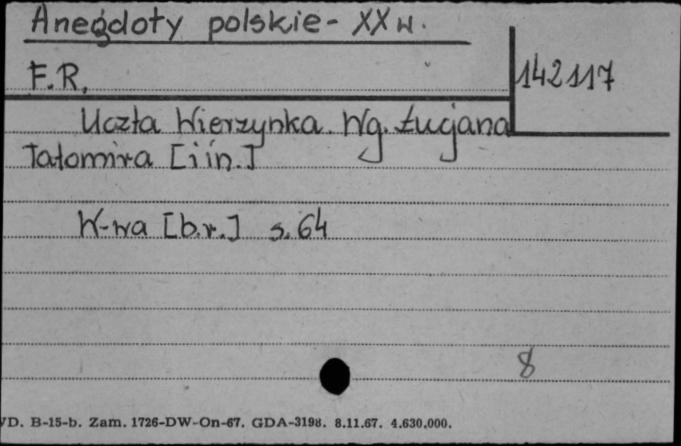 Anegdoty polskie - XX w.
F.R.
142117
Uczta Wierzynka. Wg. Łucjana
Tatomira [i in.]
W-wa [b.r.] s. 64
8
VD. B-15-b. Zam. 1726-DW-On-67. GDA-3198. 8.11.67. 4.630.000.